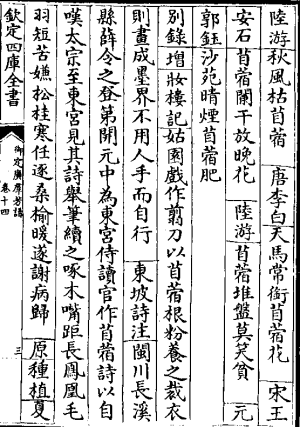 陸游秋風枯苜蓿　唐李白天馬常銜苜蓿花　宋王
安石苜蓿闌干放晚花　陸游苜蓿堆盤莫笑貧　元
郭鈺沙苑晴煙苜蓿肥
別錄增妝樓記姑園戲作剪刀以苜蓿根粉養之裁衣
則畫成墨界不用人手而自行　東坡詩注閩川長溪
縣薛令之登第開元中為東宮侍讀官作苜蓿詩以自
嘆太宗至東宮見其詩舉筆續之啄木嘴距長鳳凰毛
羽短苦嫌松桂寒任逐桑榆暖遂謝病歸　原種植夏
欽定四庫全書
御定廣羣芳譜
卷十四
三